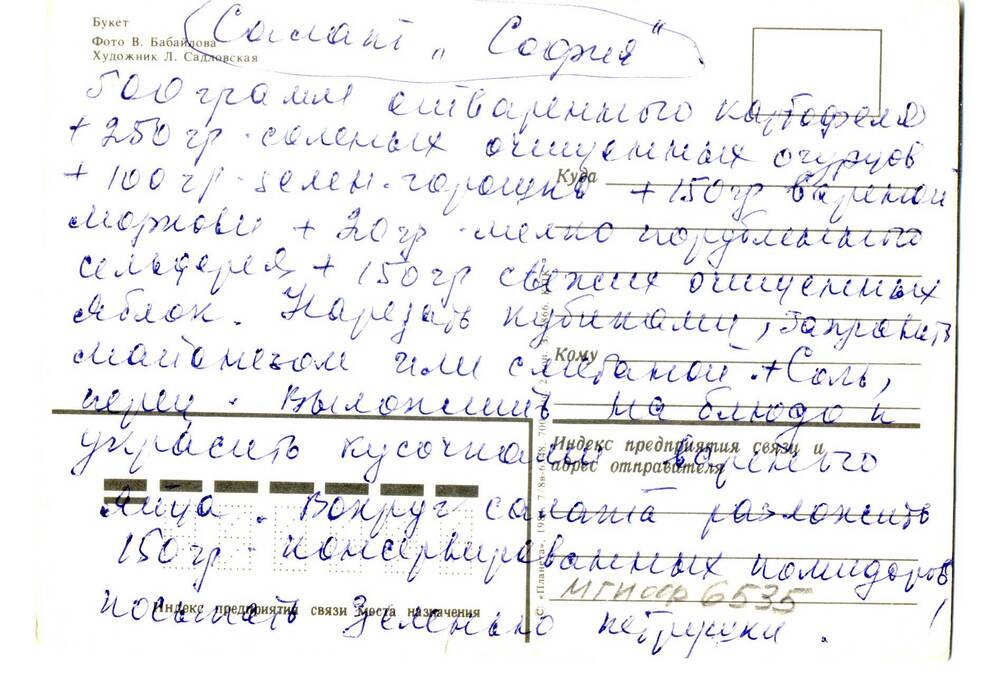 Букет
Фото В. Бабайлова
Художник Л. Садловская
Салат „София“.
500 грамм отваренного картофеля
+ 250 гр. соленых очищенных огурцов
+ 100 гр. зелен. горошка + 150 гр вареной
моркови + 20 гр. мелко порубленного
сельдерея + 150 гр свежих очищенных
яблок. Нарезать кубиками, заправить
майонезом или сметаной. + Соль,
перец. Выложить на блюдо и
украсить кусочками вареного
яйца. Вокруг салата разложить
150 гр. консервированных помидоров,
посыпать зеленью петрушки.
Куда
Кому
Индекс предприятия связи и
адрес отправителя
Индекс предприятия связи места назначения
© «Планета»,
МГИ оф 6535